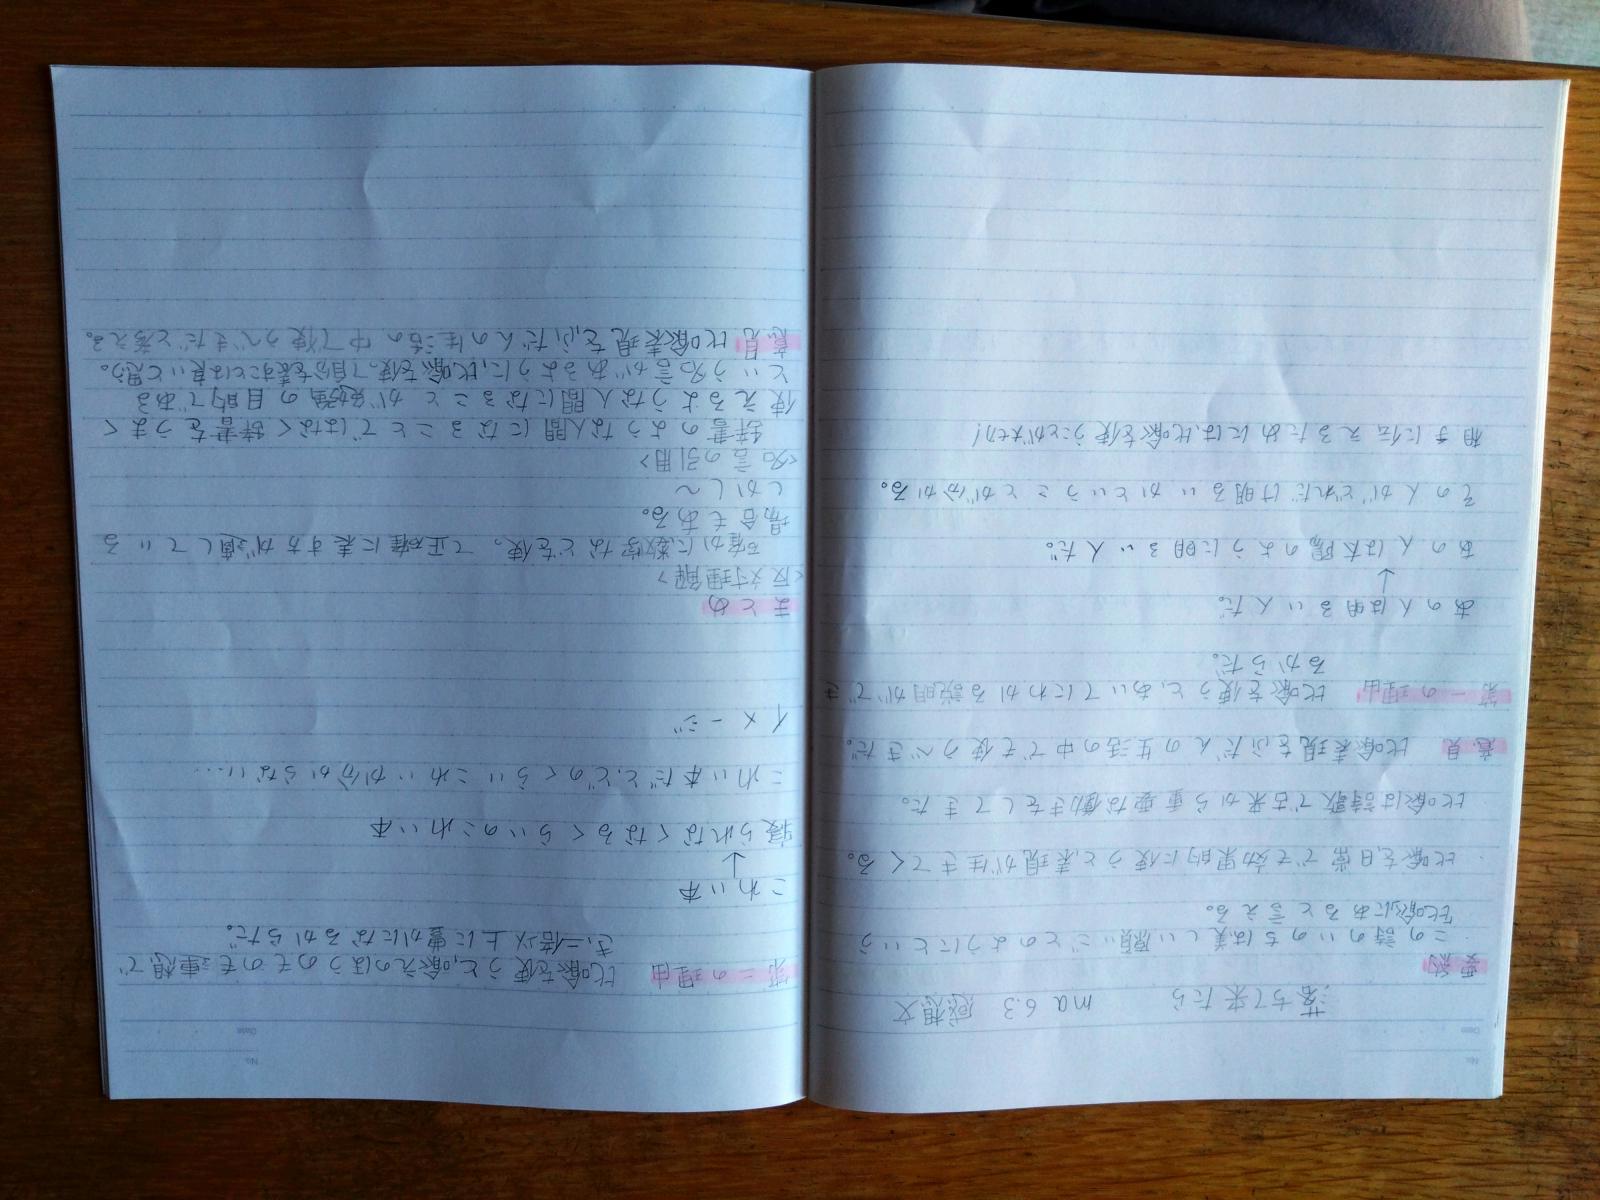 落ちて来たら ma 6.3 感想文
要約
この詩のいのちは美しい願いごとのようにという
比喩にあると言える。
比喩を、日常でも効果的に使うと、表現が生きてくる。
比喩は詩歌で古来から重要な働きをしてきた。
意見 比喩表現をふだんの生活の中でも使うべきだ。
第一の理由 比喩を使うと、あいてにわかる説明ができ
るからだ。
あの人は明るい人だ。
↓
あの人は太陽のように明るい人だ。
その人がどれだけ明るいかということが分かる。
相手に伝えるためには、比喩を使うことが大切!
No.
Date
第二の理由 比喩を使うと、喩えのほうのそのものを連想で
き、二倍以上に豊かになるからだ。
こわい本
↓
寝られなくなるくらいのこわい本
こわい本だと、どのくらいこわいか分からない…
イメージ
まとめ
<反対理解>
確かに数字などを使って正確に表す方が適している
場合もある。
しかし~
<名言の引用>
辞書のような人間になることではなく辞書をうまく
使えるような人間になることが勉強の目的である
という名言があるように、比喩を使って自分を表すことは良いと思う。
意見 比喩表現を、ふだんの生活の中で使うべきだと考える。
No.
Date